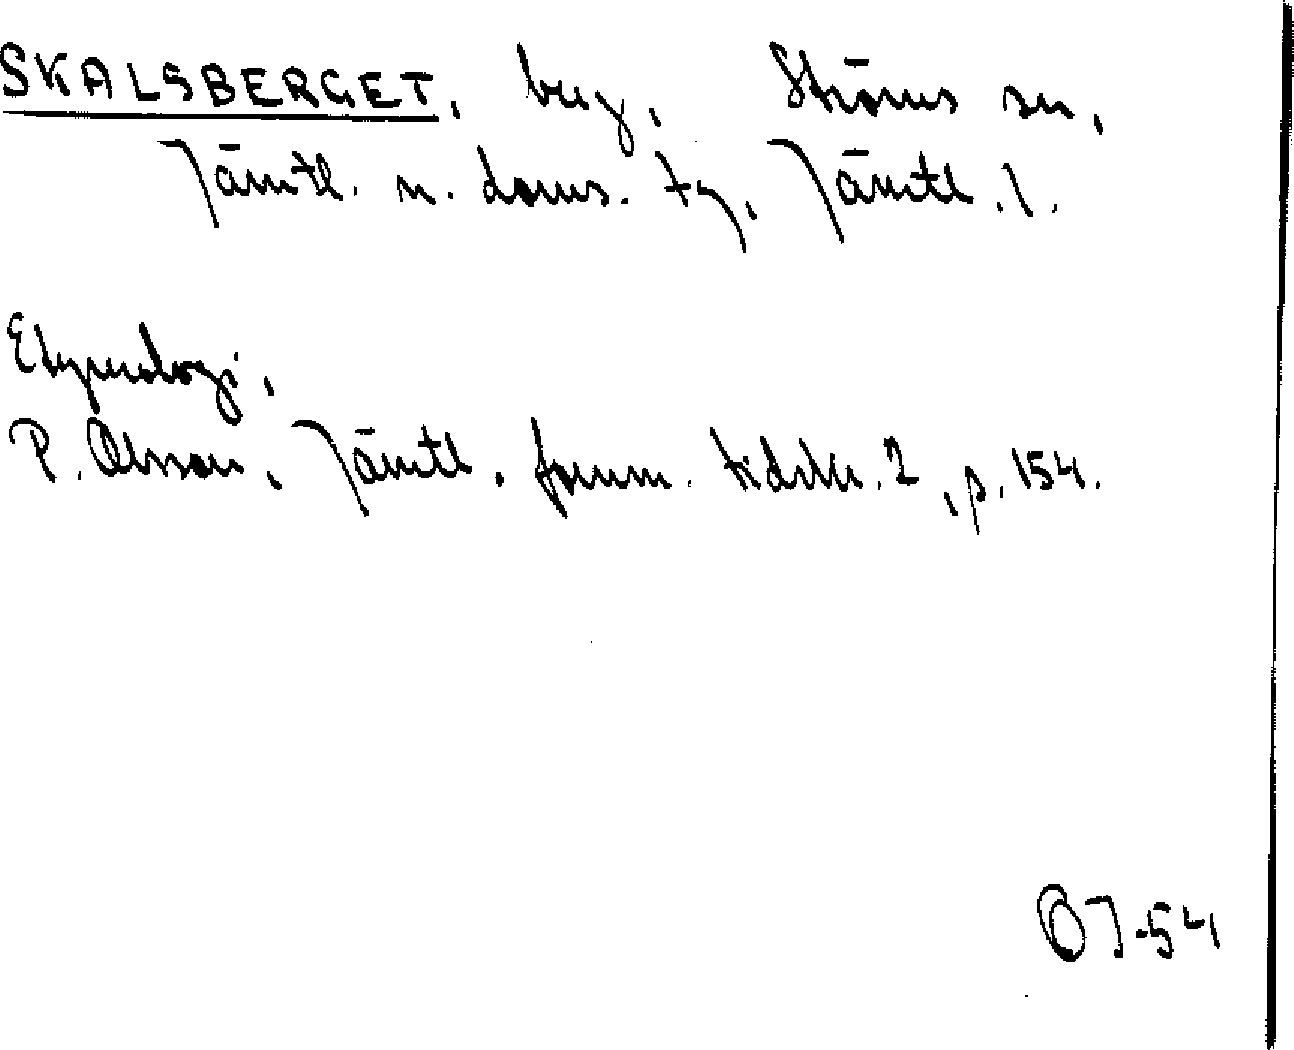 SKALSBERGET, berg, Ströms sn,
Jämtl. n. doms. tg, Jämtl. l.
Etymologi,
P. Olsson, Jämtl. fornm. tidskr. 2, p. 154.
OJ-54